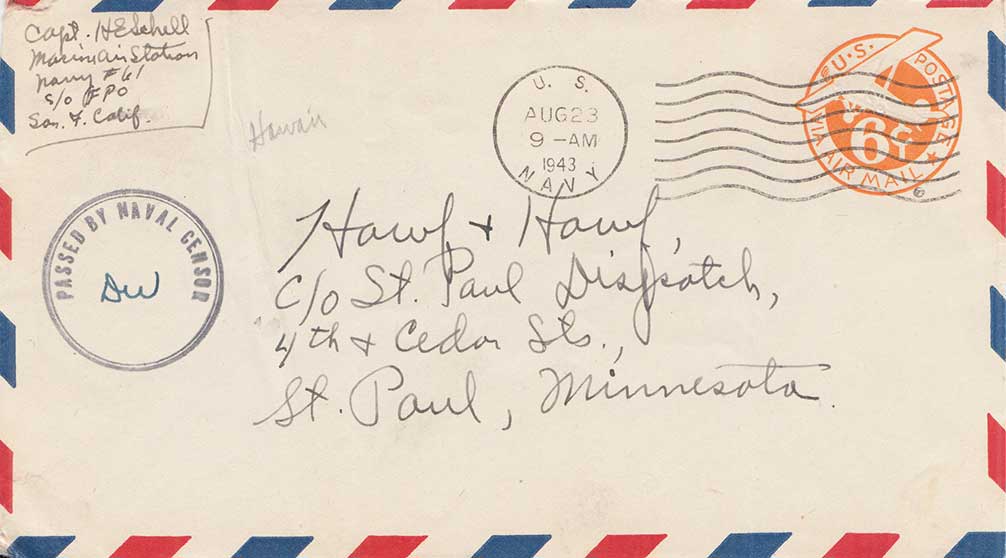 Capt. H E Schell
Marine Air Station
Navy #61
c/o FPO
San. F. Calif.
Hawaii
U. S.
AUG 23
9 - AM
1943
NAVY
U.S. POSTAGE
6¢
VIA AIR MAIL
PASSED BY NAVAL CENSOR
DW
Hawf + Hawf,
c/o St. Paul Dispatch,
4th + Cedar Sts.,
St. Paul, Minnesota.